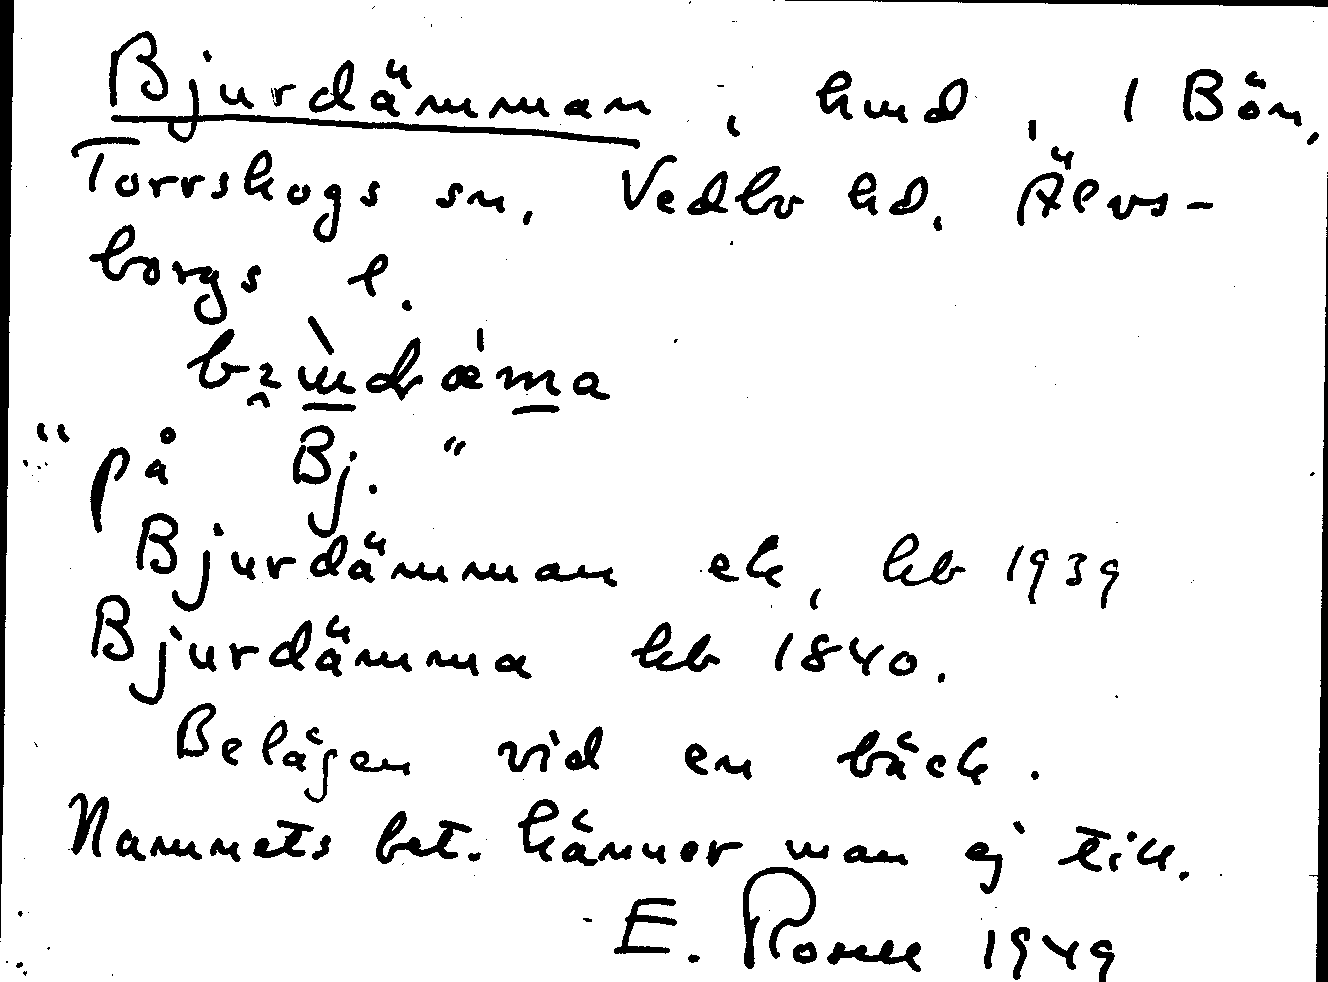 Bjurdämman, hmd, 1 Bön,
Torrskogs sn, Vedbo hd, Älvs-
borgs l.
"på Bj."
Bjurdämman ek, kb 1939
Bjurdämma kb 1840.
Belägen vid en bäck.
Namnets bet. känner man ej till.
E. Rosell 1949